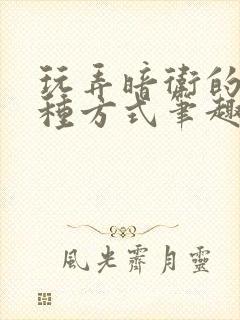 玩弄暗衛的
種方式筆趣
風光霽月靈